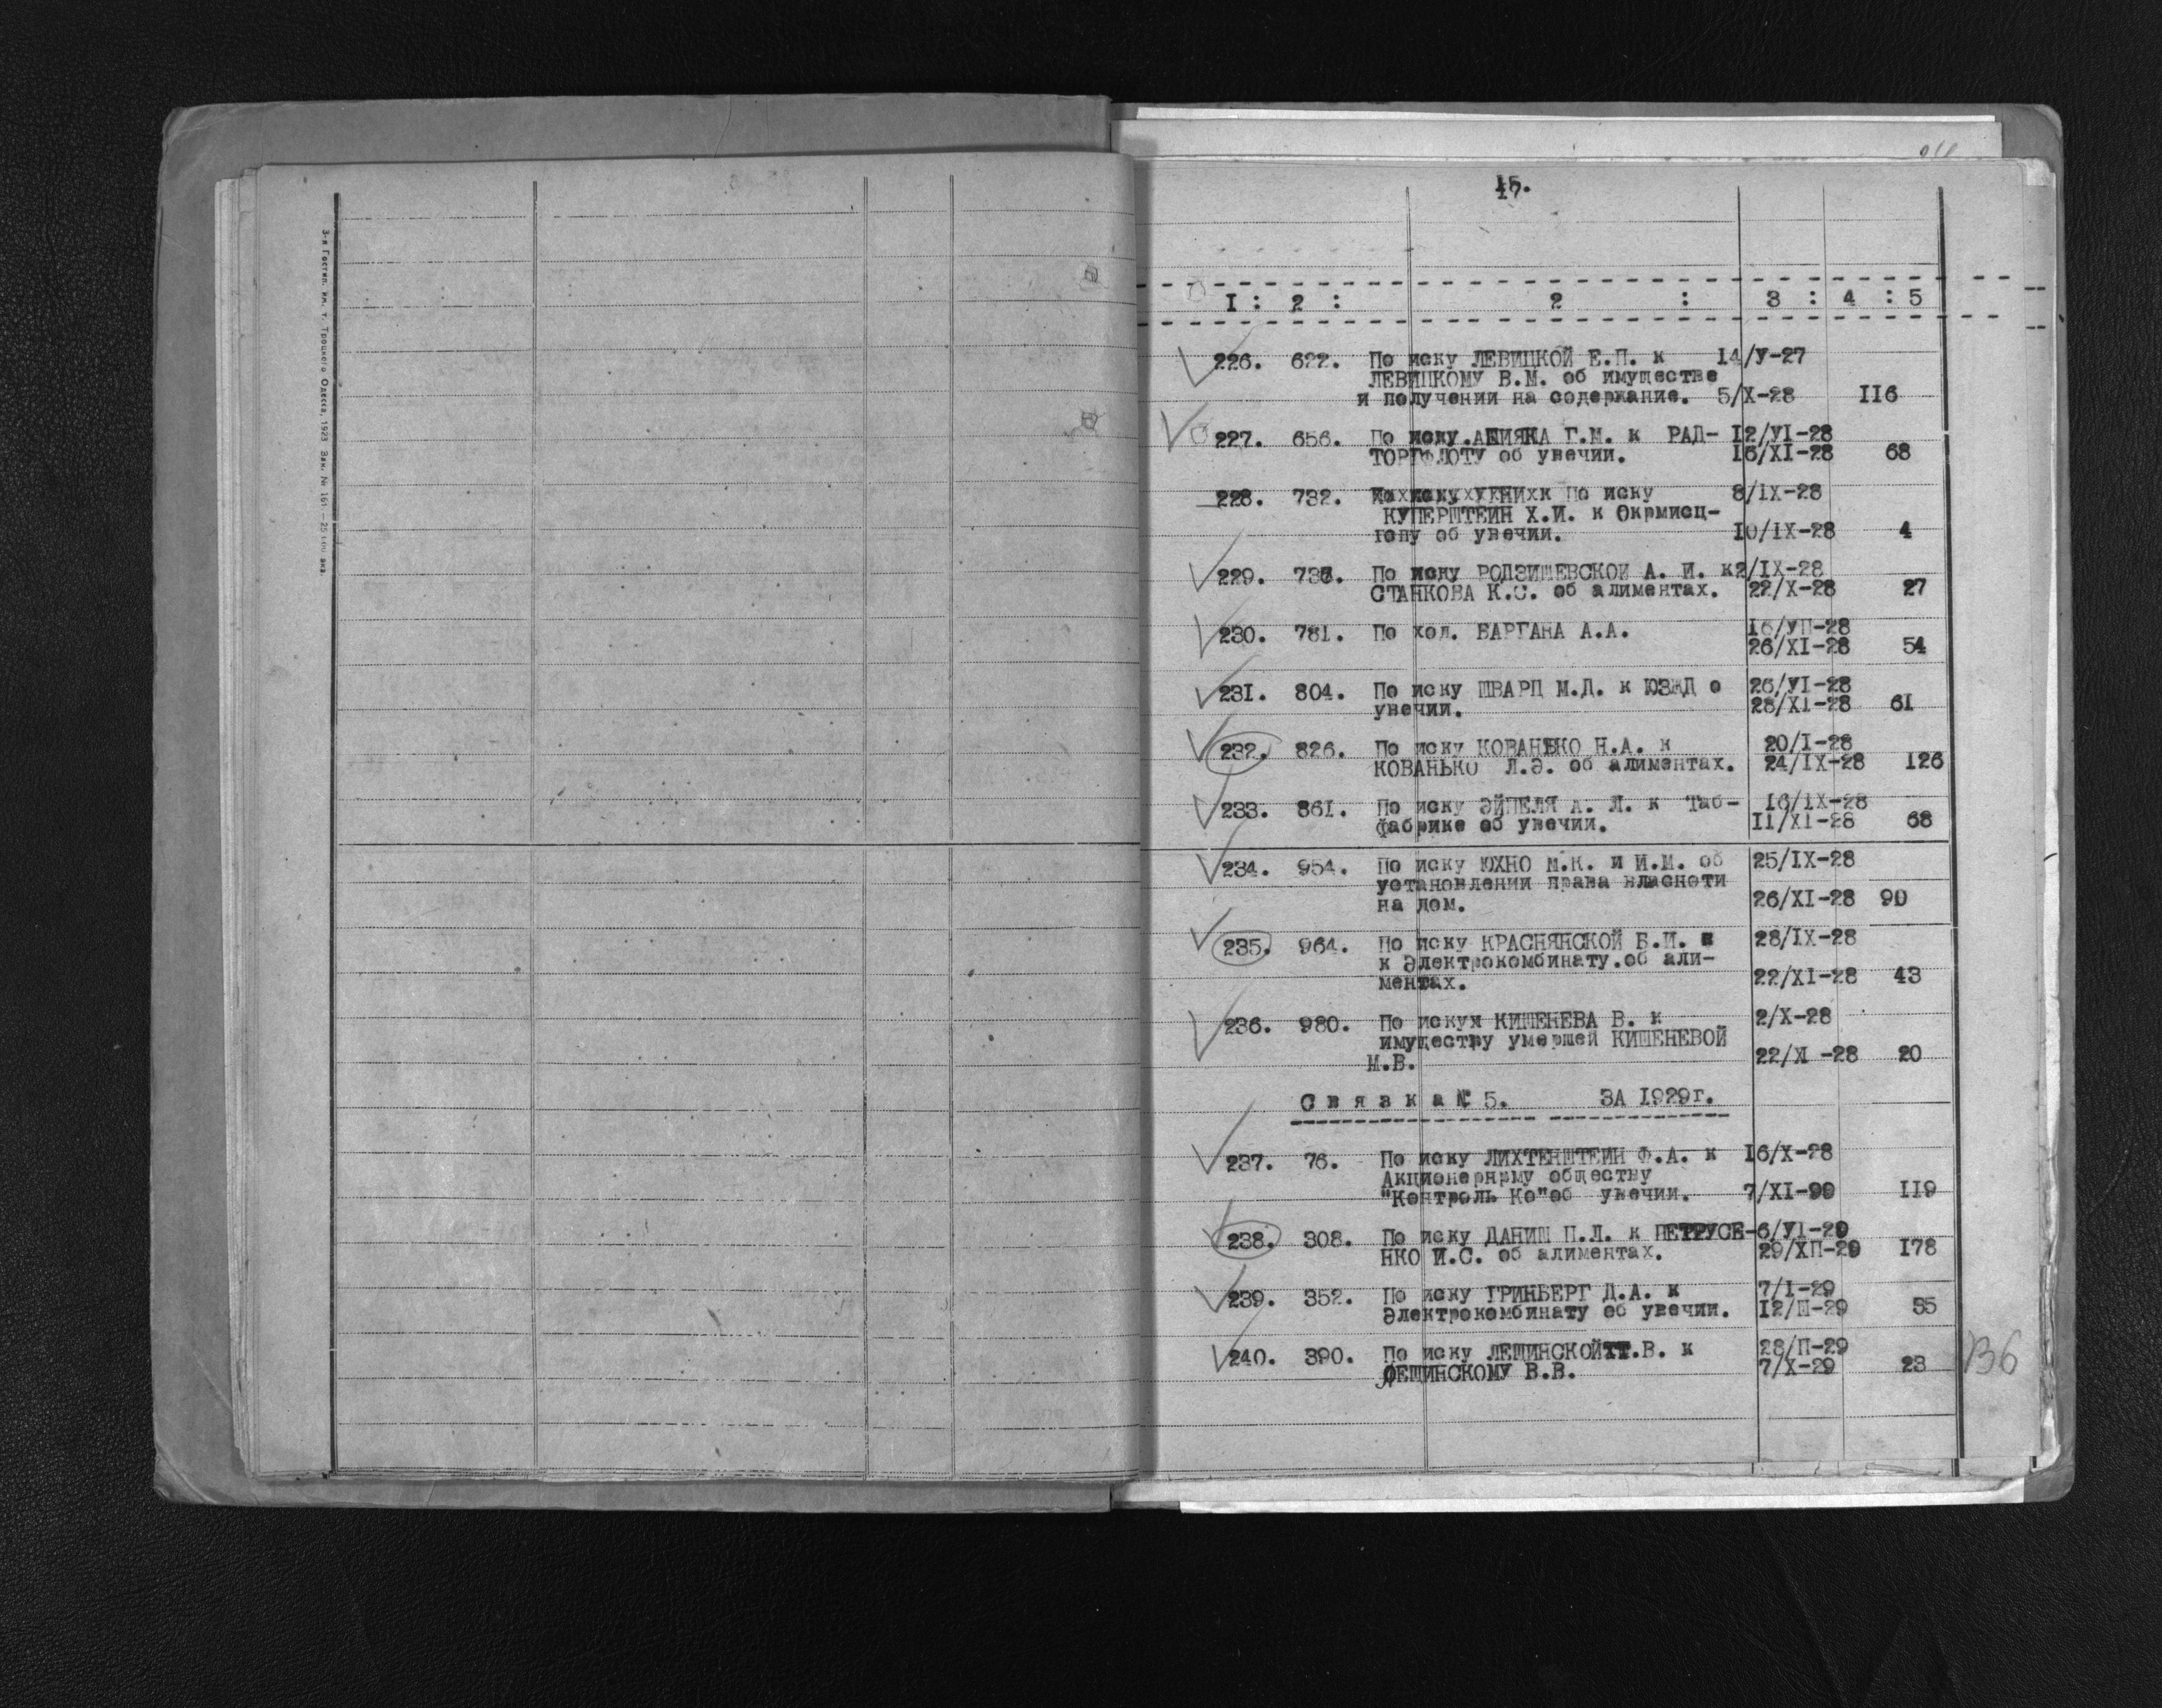 3-я Гостип. им. т. Троцкого Одесса, 1923 Зак. № 161 — 25
I : 2 : 2 : 3 : 4 : 5
226. 622. По иску ЛЕВИЦКОЙ Е.П. к 14/У-27
ЛЕВИЦКОМУ В.М. об имуществе
и получении на содержание. 5/Х-28 116
227. 656. По иску. Г.М. к РАД- 12/УI-28
ТОРГФЛОТУ об увечии. 16/XI-28 68
228. 732. По иску 8/IX-28
КУПЕРШТЕИН Х.И. к Окрмисц-
гопу об увечии. 10/IX-28 4
229. По иску РОДЗИШЕВСКОЙ А. И. к 2/IX-28
СТАНКОВА К.С. об алиментах. 22/Х-28 27
230. 781. По ход. БАРГАНА А.А. 16/УП-28
26/XI-28 54
231. 804. По иску ШВАРЦ М.Д. к ЮЗЖД о 26/УI-28
увечии. 28/XI-28 61
232. 826. По иску КОВАНЬКО Н.А. к 20/I-28
КОВАНЬКО Л.Э. об алиментах. 24/IX-28 126
233. 861. По иску ЭЙПЕЛЯ А. Л. к Таб- 16/IX-28
фабрике об увечии. 11/XI-28 68
234. 954. По иску ЮХНО М.К. и И.М. об 25/IX-28
установлении права власноти
на дом. 26/XI-28 90
235. 964. По иску КРАСНЯНСКОЙ Б.И. к 28/IX-28
к Электрокомбинату.об али-
ментах. 22/XI-28 43
236. 980. По искуя КИШЕНЕВА В. к 2/Х-28
имуществу умершей КИШЕНЕВОЙ
М.В. 22/XI -28 20
С в я з к а № 5. ЗА 1929г.
237. 76. По иску ЛИХТЕНШТЕИН Ф.А. к 16/Х-28
Акционерярму обществу
"Контроль Ко"об увечии. 7/XI-99 119
238. 308. По иску ДАНИШ П.Л. к ПЕТРУСЕ- 6/УI-29
НКО И.С. об алиментах. 29/ХП-29 178
239. 352. По иску ГРИНБЕРГ Д.А. к 7/I-29
Электрокомбинату об увечии. 12/Ш-29 35
240. 390. По иску ЛЕЩИНСКОЙ В. к 28/П-29
ЛЕЩИНСКОМУ В.В. 7/Х-29 23
136